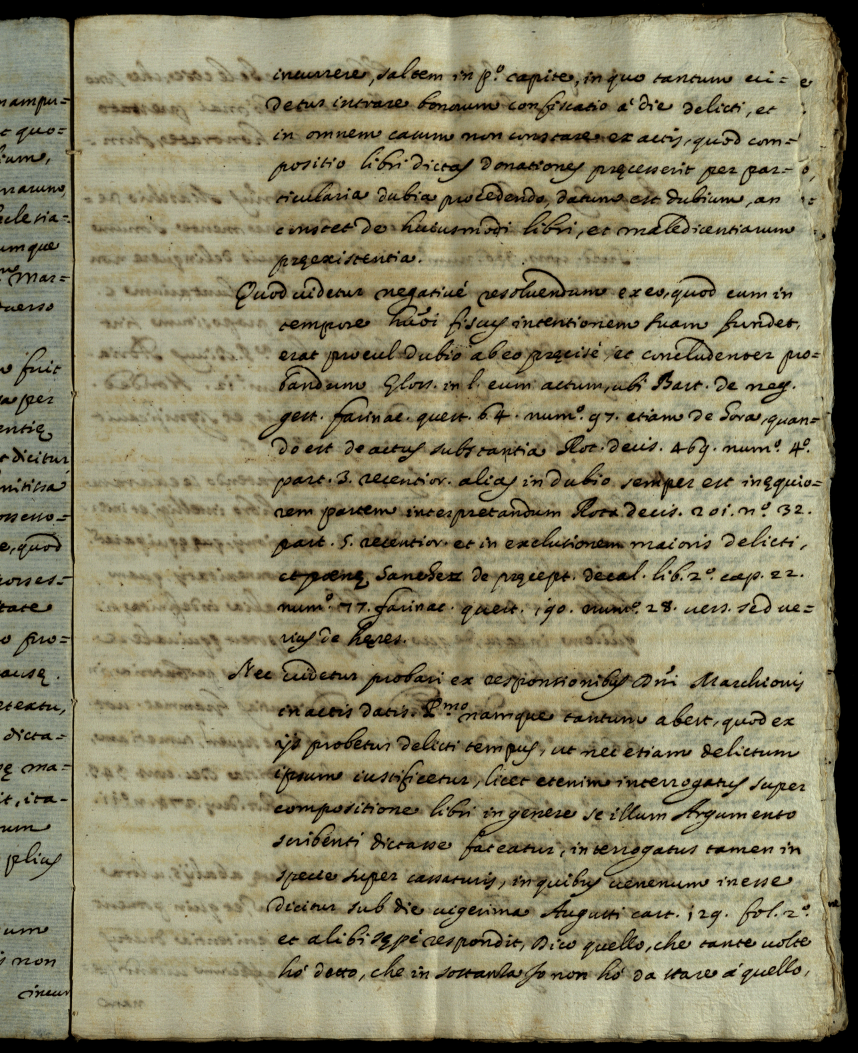 incurrere, saltem in p.º capite, in quo tantum vi=
detur intrare bonorum confiscatio á die delicti, et
in omnem casum non constare ex actis, quod com=
positio libri dictas donationes pręcesserit per par=
ticularia dubia procedendo, datum est dubium, an
constet de huiusmodi libri, et maledicentiarum
pręexistentia.
Quod videtur negativé resolvendum ex eo, quod cum in
tempore hũõi fiscus intentionem suam fundet,
erat procul dubio ab eo pręcisé, et concludenter pro=
bandum Glos. in l. eum actum, ubi Bart. de neg.
gest. farinac. quest. 64. num.º 97. etiam de hora, quan=
do est de actus substantia Rot. decis. 469. num.º 4º.
part. 3. recentior. alias in dubio semper est inęquio=
rem partem interpretandum Rota decis. 201. n.º 32.
part. 5. recentior. et in exclusionem maioris delicti,
et pœnę Sanchez de pręcept. decal. lib. 2.º cap. 22.
num.º 77. farinac. quest. 190. num.º 28. vers. sed ve=
rius de hęres.
Nec videtur probari ex responsionibus Dñi Marchionis
in actis datis. P.mo namque tantum abest, quod ex
ijs probetur delicti tempus, ut nec etiam delictum
ipsum iustificetur, licet etenim interrogatus super
compositione libri in genere se illum Argumento
scribenti dictasse fateatur, interrogatus tamen in
specie super cassaturis, in quibus venenum inesse
dicitur sub die vigesima Augusti cart. 129. fol. 2.º
et alibi sępé respondit, Dico quello, che tante volte
hó detto, che in sostanza Io non hó da stare á quello,
nampu=
t quo=
lium,
rrarum,
cclesia=
umque
Mar=
verso
fuit
per
entię
t dicitur
mitissa
ossesso=
e, quod
ors es=
tate
o pro=
ausę.
eteatu,
dicta=
sę ma=
it, ita=
rum
plius
um
s non
incur